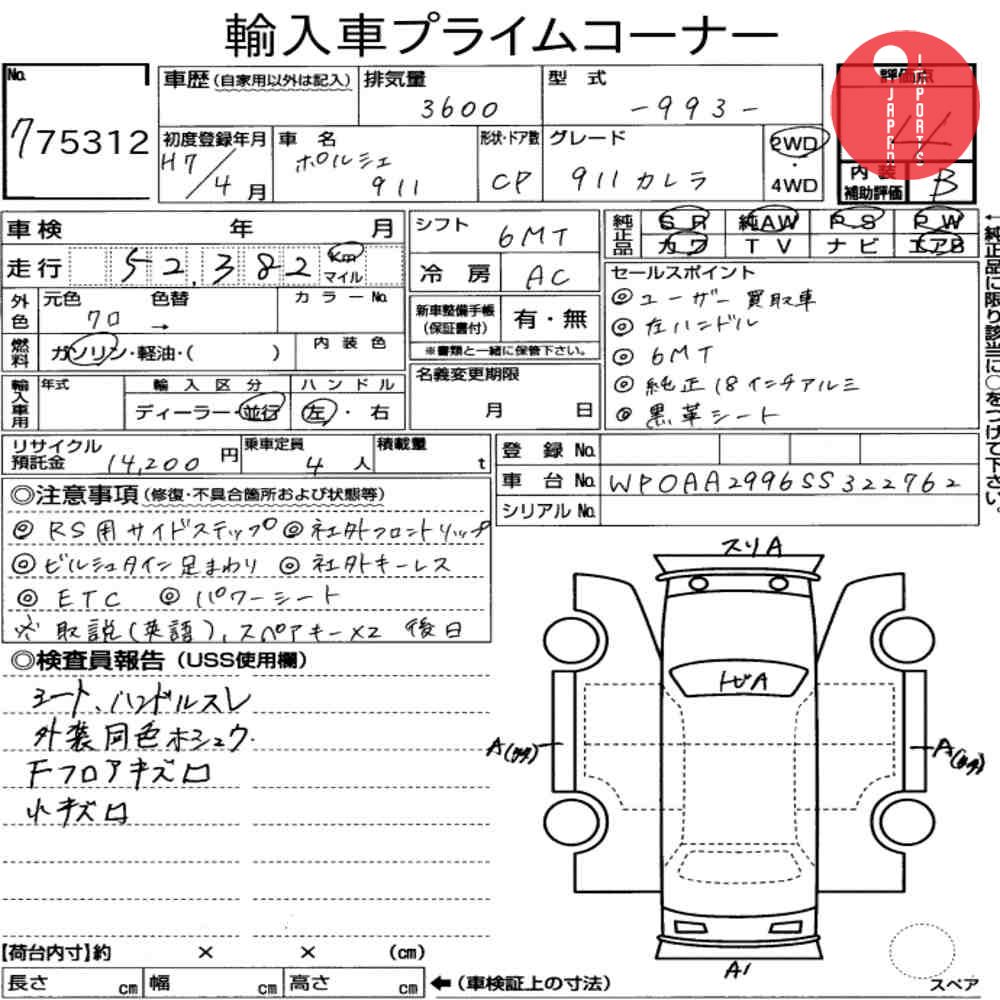 輸入車プライムコーナー
No.
775312
車歴(自家用以外は記入)
排気量
3600
型式
-993-
評価点
4
JAPAN IMPORTS
初度登録年月
H7/4月
車名
ポルシェ 911
形状・ドア数
CP
グレード
911カレラ
2WD・4WD
内装補助評価
B
車検 年 月
走行 52,382 km マイル
シフト
6MT
冷房
AC
純正品
SR 純AW PS PW
カワ TV ナビ エアB
←純正品に限り該当に○をつけて下さい。
外色
元色 色替
70 →
カラーNo.
燃料
ガソリン・軽油・( )
内装色
新車整備手帳(保証書付)
有・無
※書類と一緒に保管下さい。
セールスポイント
◎ユーザー買取車
◎左ハンドル
◎6MT
◎純正18インチアルミ
◎黒革シート
輸入車用
年式
輸入区分
ディーラー・並行
ハンドル
左・右
名義変更期限
月 日
リサイクル預託金 14,200円
乗車定員 4人
積載量 t
登録No.
車台No. WP0AA2996SS322762
シリアルNo.
◎注意事項(修復・不具合箇所および状態等)
◎RS用サイドステップ ◎社外フロントリップ
◎ビルシュタイン足まわり ◎社外キーレス
◎ETC ◎パワーシート
※取説(英語)、スペアキー×2 後日
◎検査員報告(USS使用欄)
シート、ハンドルスレ
外装同色ホシュウ.
Fフロアキズロ
小キズロ
スリA
トビA
A
A
A1
【荷台内寸】約 × × (cm)
長さ cm 幅 cm 高さ cm ←(車検証上の寸法)
スペア